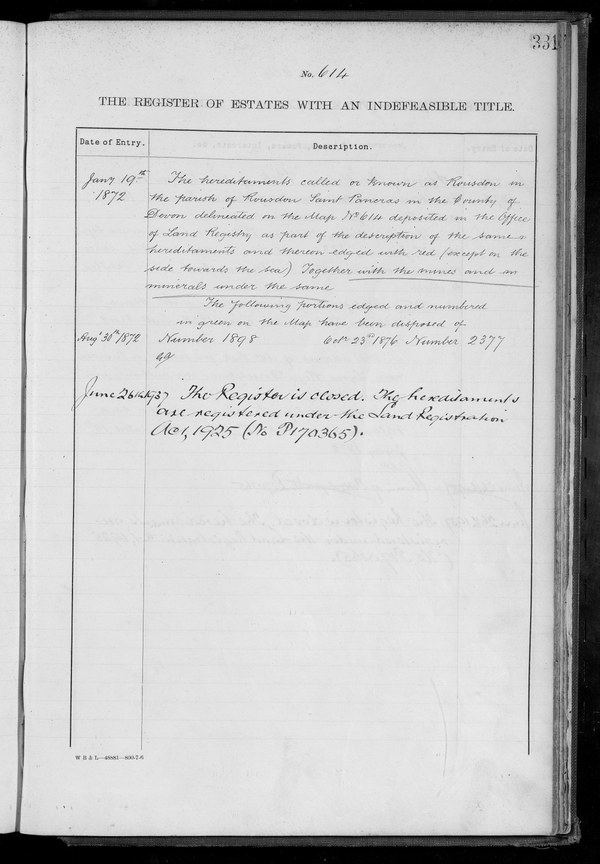 331
No. 614
THE REGISTER OF ESTATES WITH AN INDEFEASIBLE TITLE.
Date of Entry.
Description.
Jany 19th
1872
The hereditaments called or known as Rousdon in
the parish of Rousdon Saint Pancras in the County of
Devon delineated on the Map No 614 deposited in the Office
of Land Registry as part of the description of the same
hereditaments and thereon edged with red (except on the
side towards the sea) Together with the mines and
minerals under the same
The following portions edged and numbered
in green on the Map have been disposed of
Augt 30th 1872 Number 1898 Octr 23rd 1876 Number 2377
June 26th 1937 The Register is closed. The hereditaments
are registered under the Land Registration
Act, 1925 (No P170365).
W B & L—48861—800-7-6